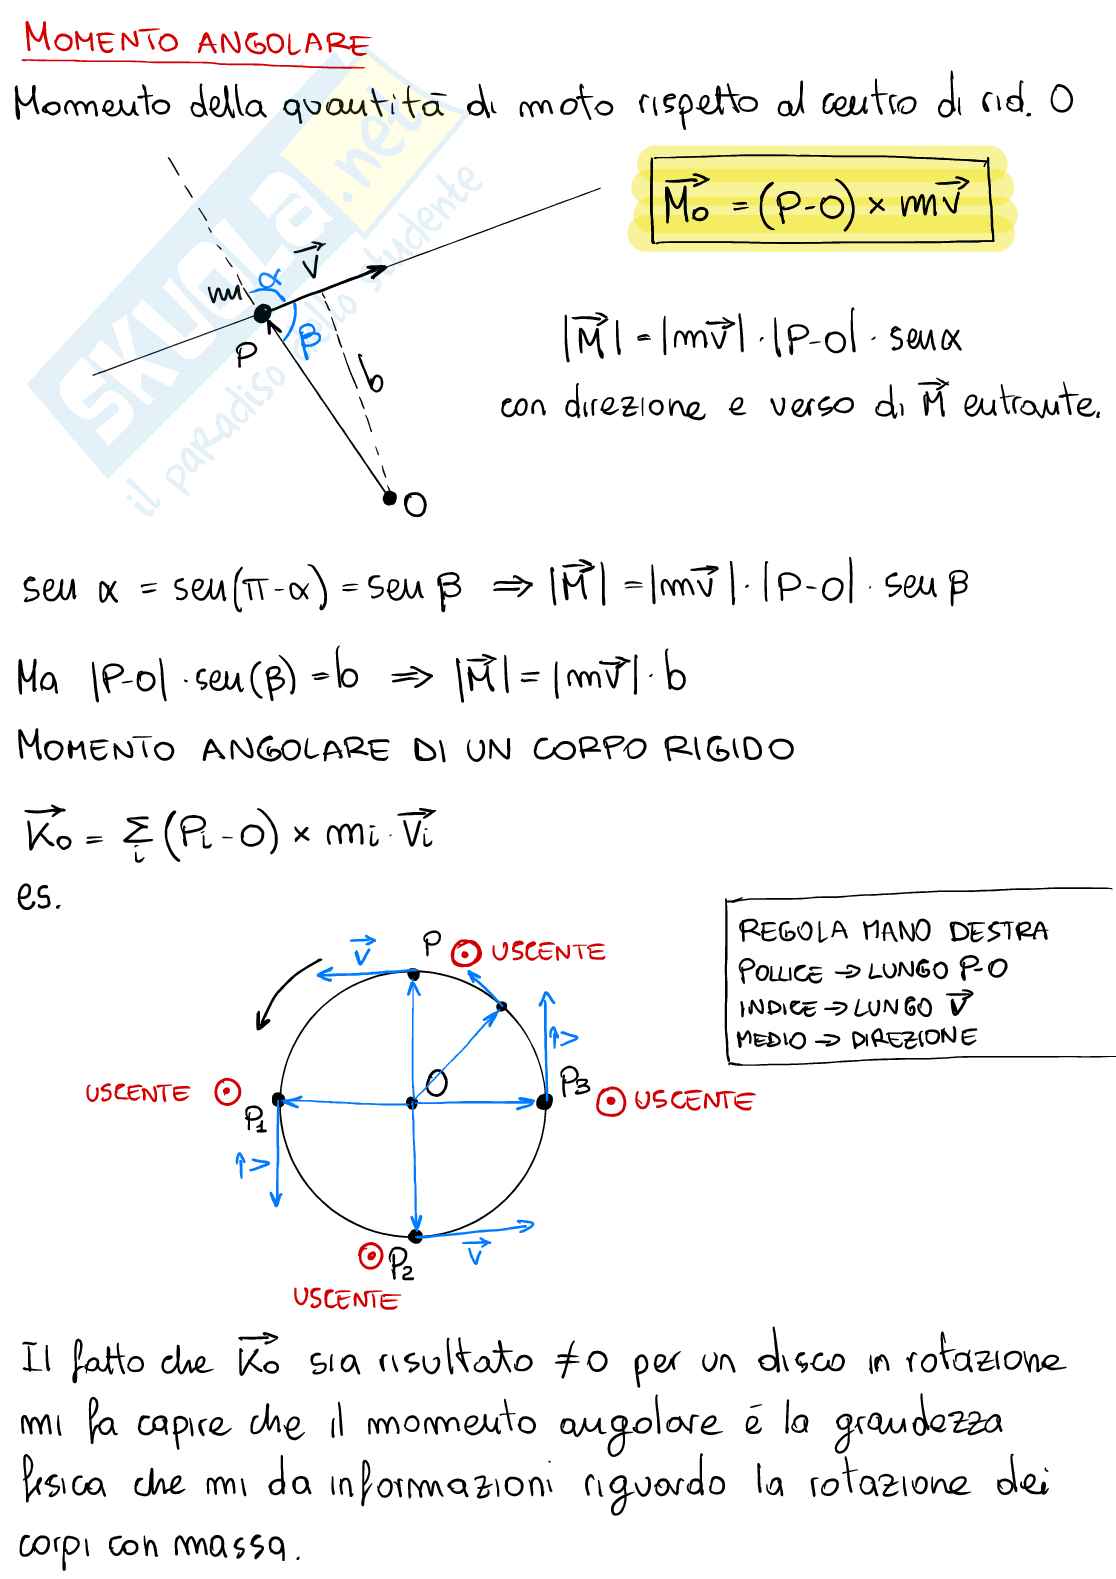 MOMENTO ANGOLARE
Momento della quantità di moto rispetto al centro di rid. O
M⃗o = (P-O) × mv⃗
m α v⃗
P β
b
O
|M⃗| = |mv⃗| · |P-O| · senα
con direzione e verso di M⃗ entrante.
sen α = sen(π-α) = sen β ⇒ |M⃗| = |mv⃗| · |P-O| · sen β
Ma |P-O| · sen(β) = b ⇒ |M⃗| = |mv⃗| · b
MOMENTO ANGOLARE DI UN CORPO RIGIDO
K⃗o = Σi (Pi - O) × mi · v⃗i
es.
REGOLA MANO DESTRA
POLLICE → LUNGO P-O
INDICE → LUNGO v⃗
MEDIO → DIREZIONE
v⃗ P USCENTE
v⃗
O
USCENTE P1 P3 USCENTE
v⃗
P2 v⃗
USCENTE
Il fatto che K⃗o sia risultato ≠0 per un disco in rotazione
mi fa capire che il momento angolare é la grandezza
fisica che mi da informazioni riguardo la rotazione dei
corpi con massa.
SKUOLA.net
il paradiso dello studente